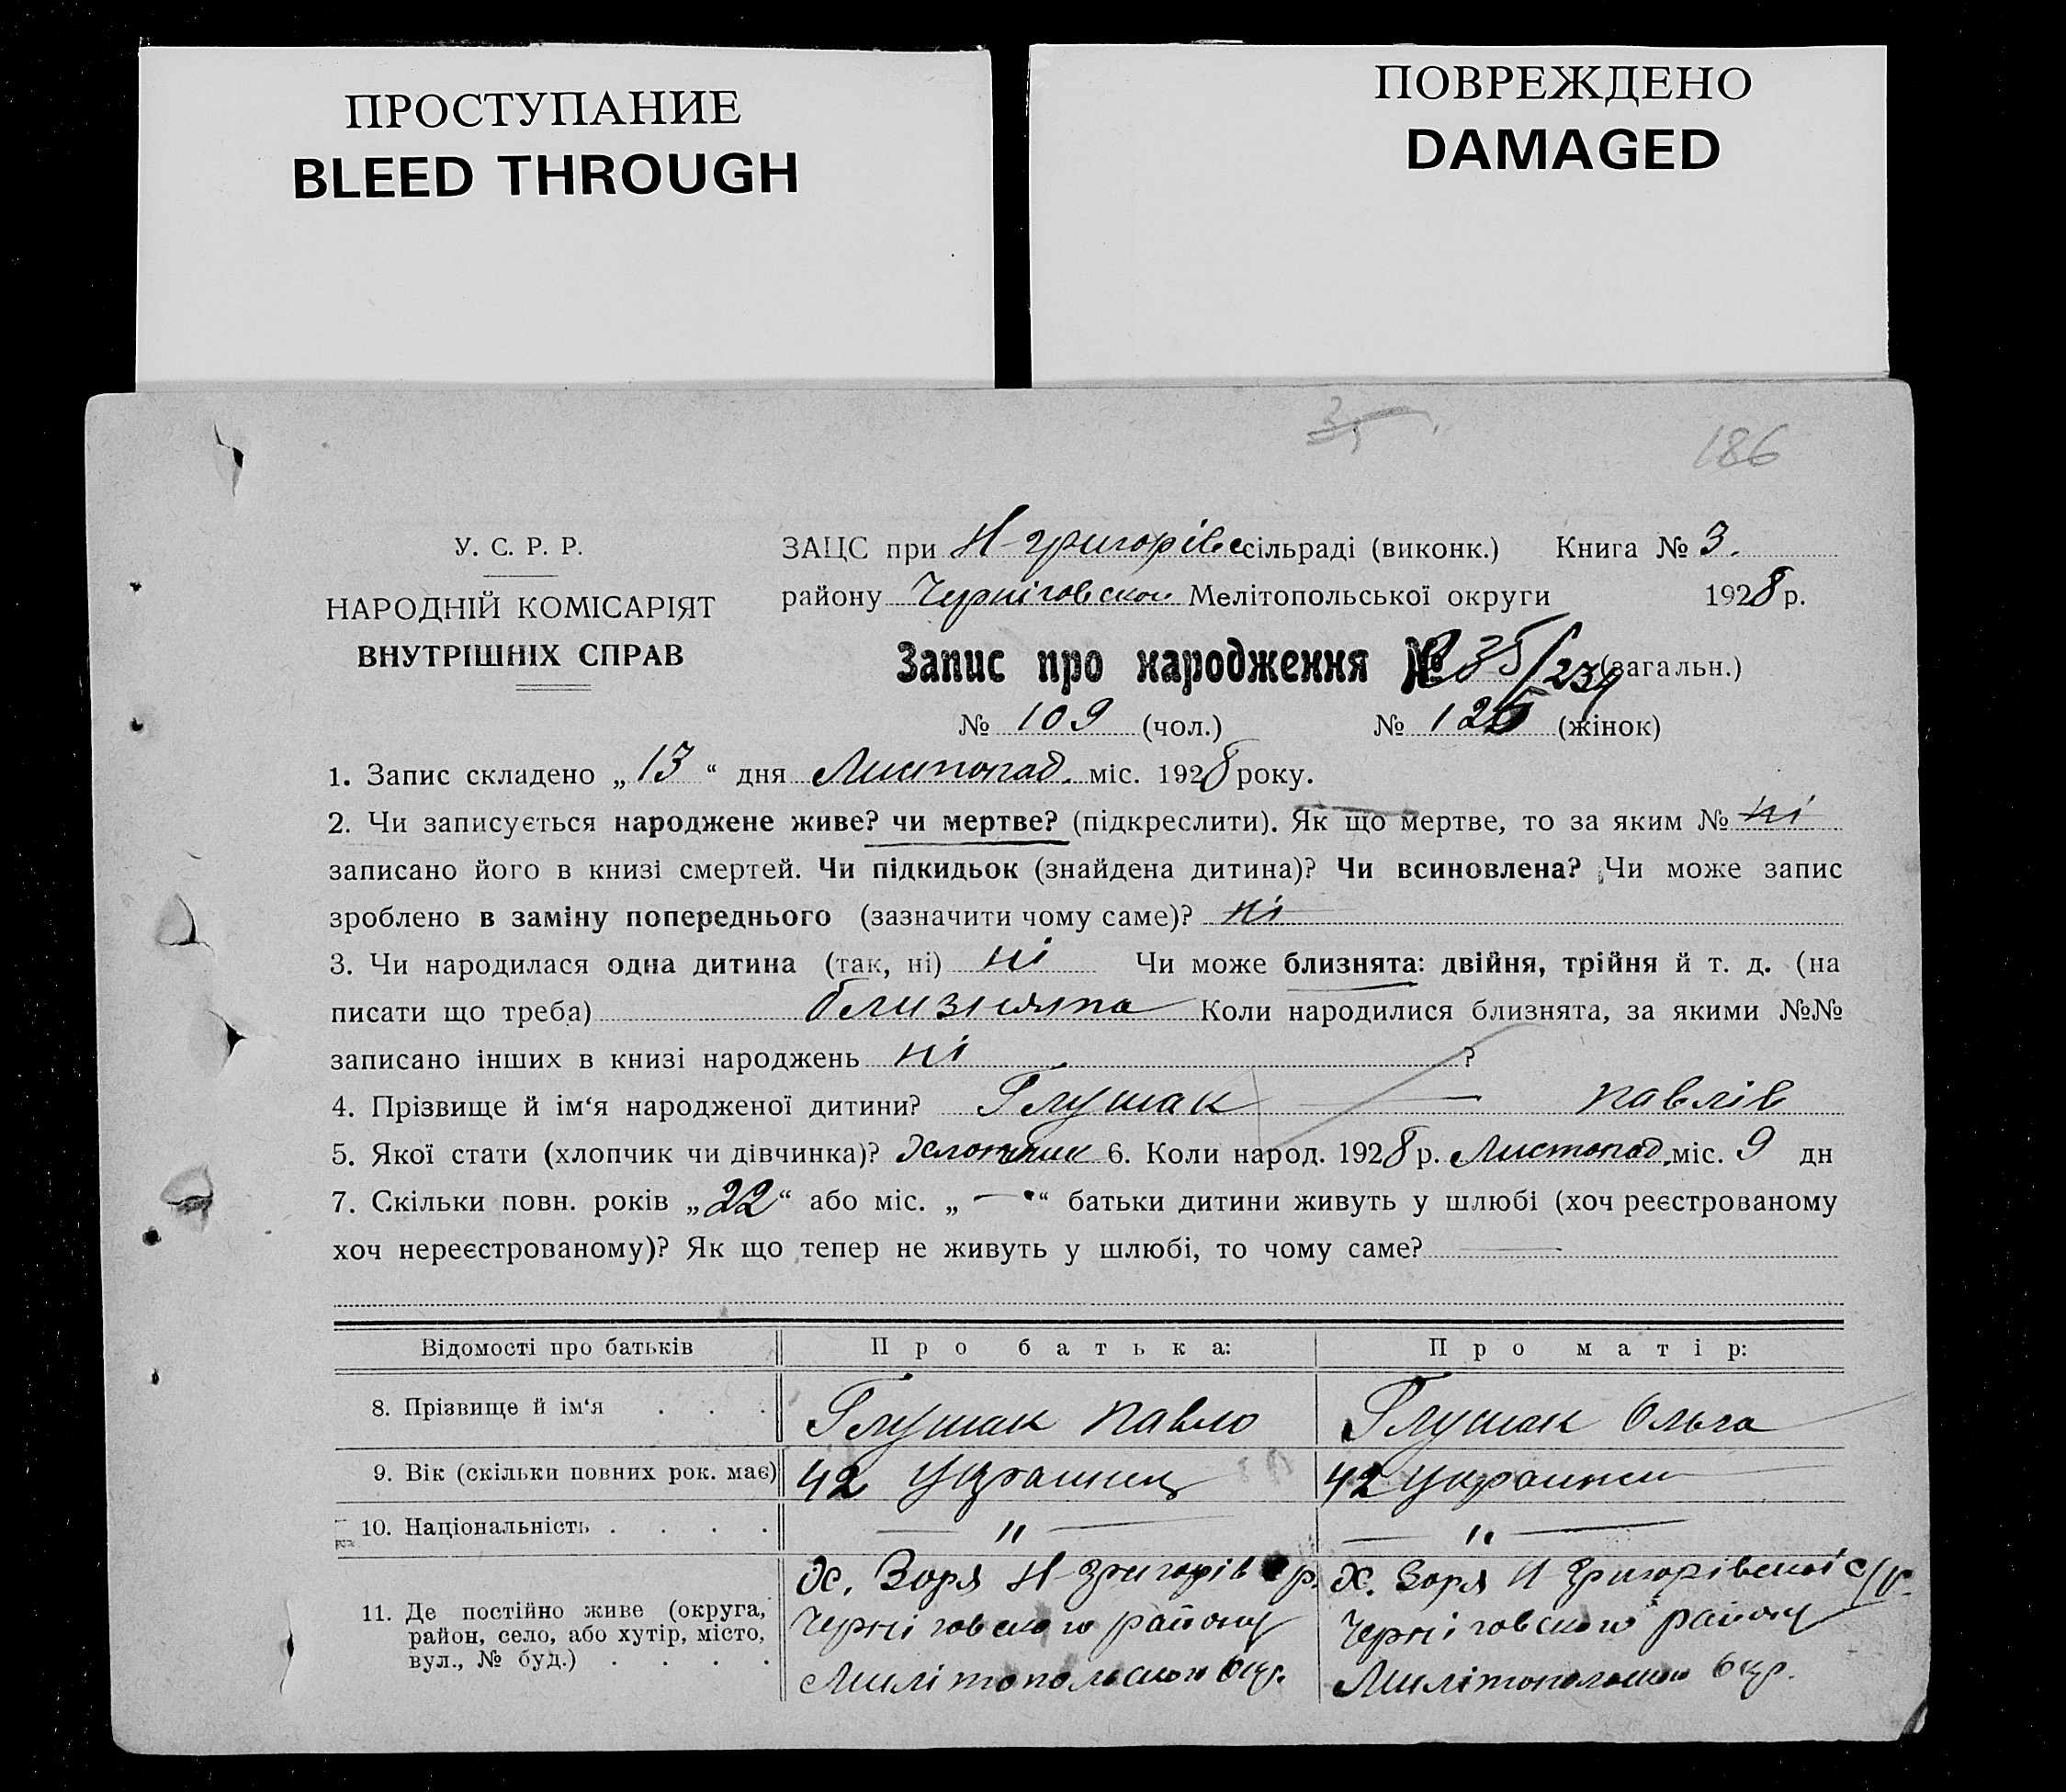 ПРОСТУПАНИЕ
BLEED THROUGH
ПОВРЕЖДЕНО
DAMAGED
186
У. С. Р. Р.
НАРОДНІЙ КОМІСАРІЯТ
ВНУТРІШНІХ СПРАВ
ЗАЦС при Н-григорівс сільраді (виконк.) Книга № 3.
району Черніговської Мелітопольської округи 1928 р.
Запис про народження № 235/234 (загальн.)
№ 109 (чол.) № 125 (жінок)
1. Запис складено „ 13 “ дня Листопад. міс. 1928 року.
2. Чи записується народжене живе? чи мертве? (підкреслити). Як що мертве, то за яким № ні
записано його в книзі смертей. Чи підкидьок (знайдена дитина)? Чи всиновлена? Чи може запис
зроблено в заміну попереднього (зазначити чому саме)? ні
3. Чи народилася одна дитина (так, ні) ні Чи може близнята: двійня, трійня й т. д. (на
писати що треба) близнята Коли народилися близнята, за якими №№
записано інших в книзі народжень ні ?
4. Прізвище й ім‘я народженої дитини? Глушак — Павлів
5. Якої стати (хлопчик чи дівчинка)? Хлопчик 6. Коли народ. 1928 р. Листопад. міс. 9 дн
7. Скільки повн. років „ 22 “ або міс. „ — “ батьки дитини живуть у шлюбі (хоч реєстрованому
хоч нереєстрованому)? Як що тепер не живуть у шлюбі, то чому саме? —
Відомості про батьків Про батька: Про матір:
8. Прізвище й ім‘я . . . Глушак Павло Глушак Ольга
9. Вік (скільки повних рок. має) 42 Українец 42 Українки
10. Національність . . . . — " — — " —
11. Де постійно живе (округа, район, село, або хутір, місто, вул., № буд.) . . . .
х. Зоря Н-Григорів с р.
Черніговского району
Милітопольского Окр.
х. Зоря Н Григорівської с/р.
Черніговского району
Милітопольского Окр.